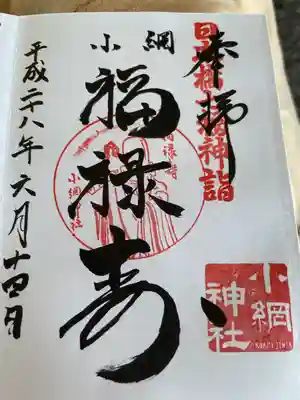 奉拝
日本橋七福神詣
小網
福禄寿
福禄寿
小網神社
平成二十八年六月十四日
小網
神社
KOAMI JINJA